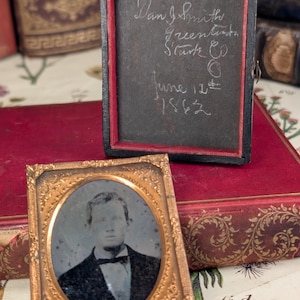 Dan J Smith
Greentown
Stark Co
O
June 12th
1862